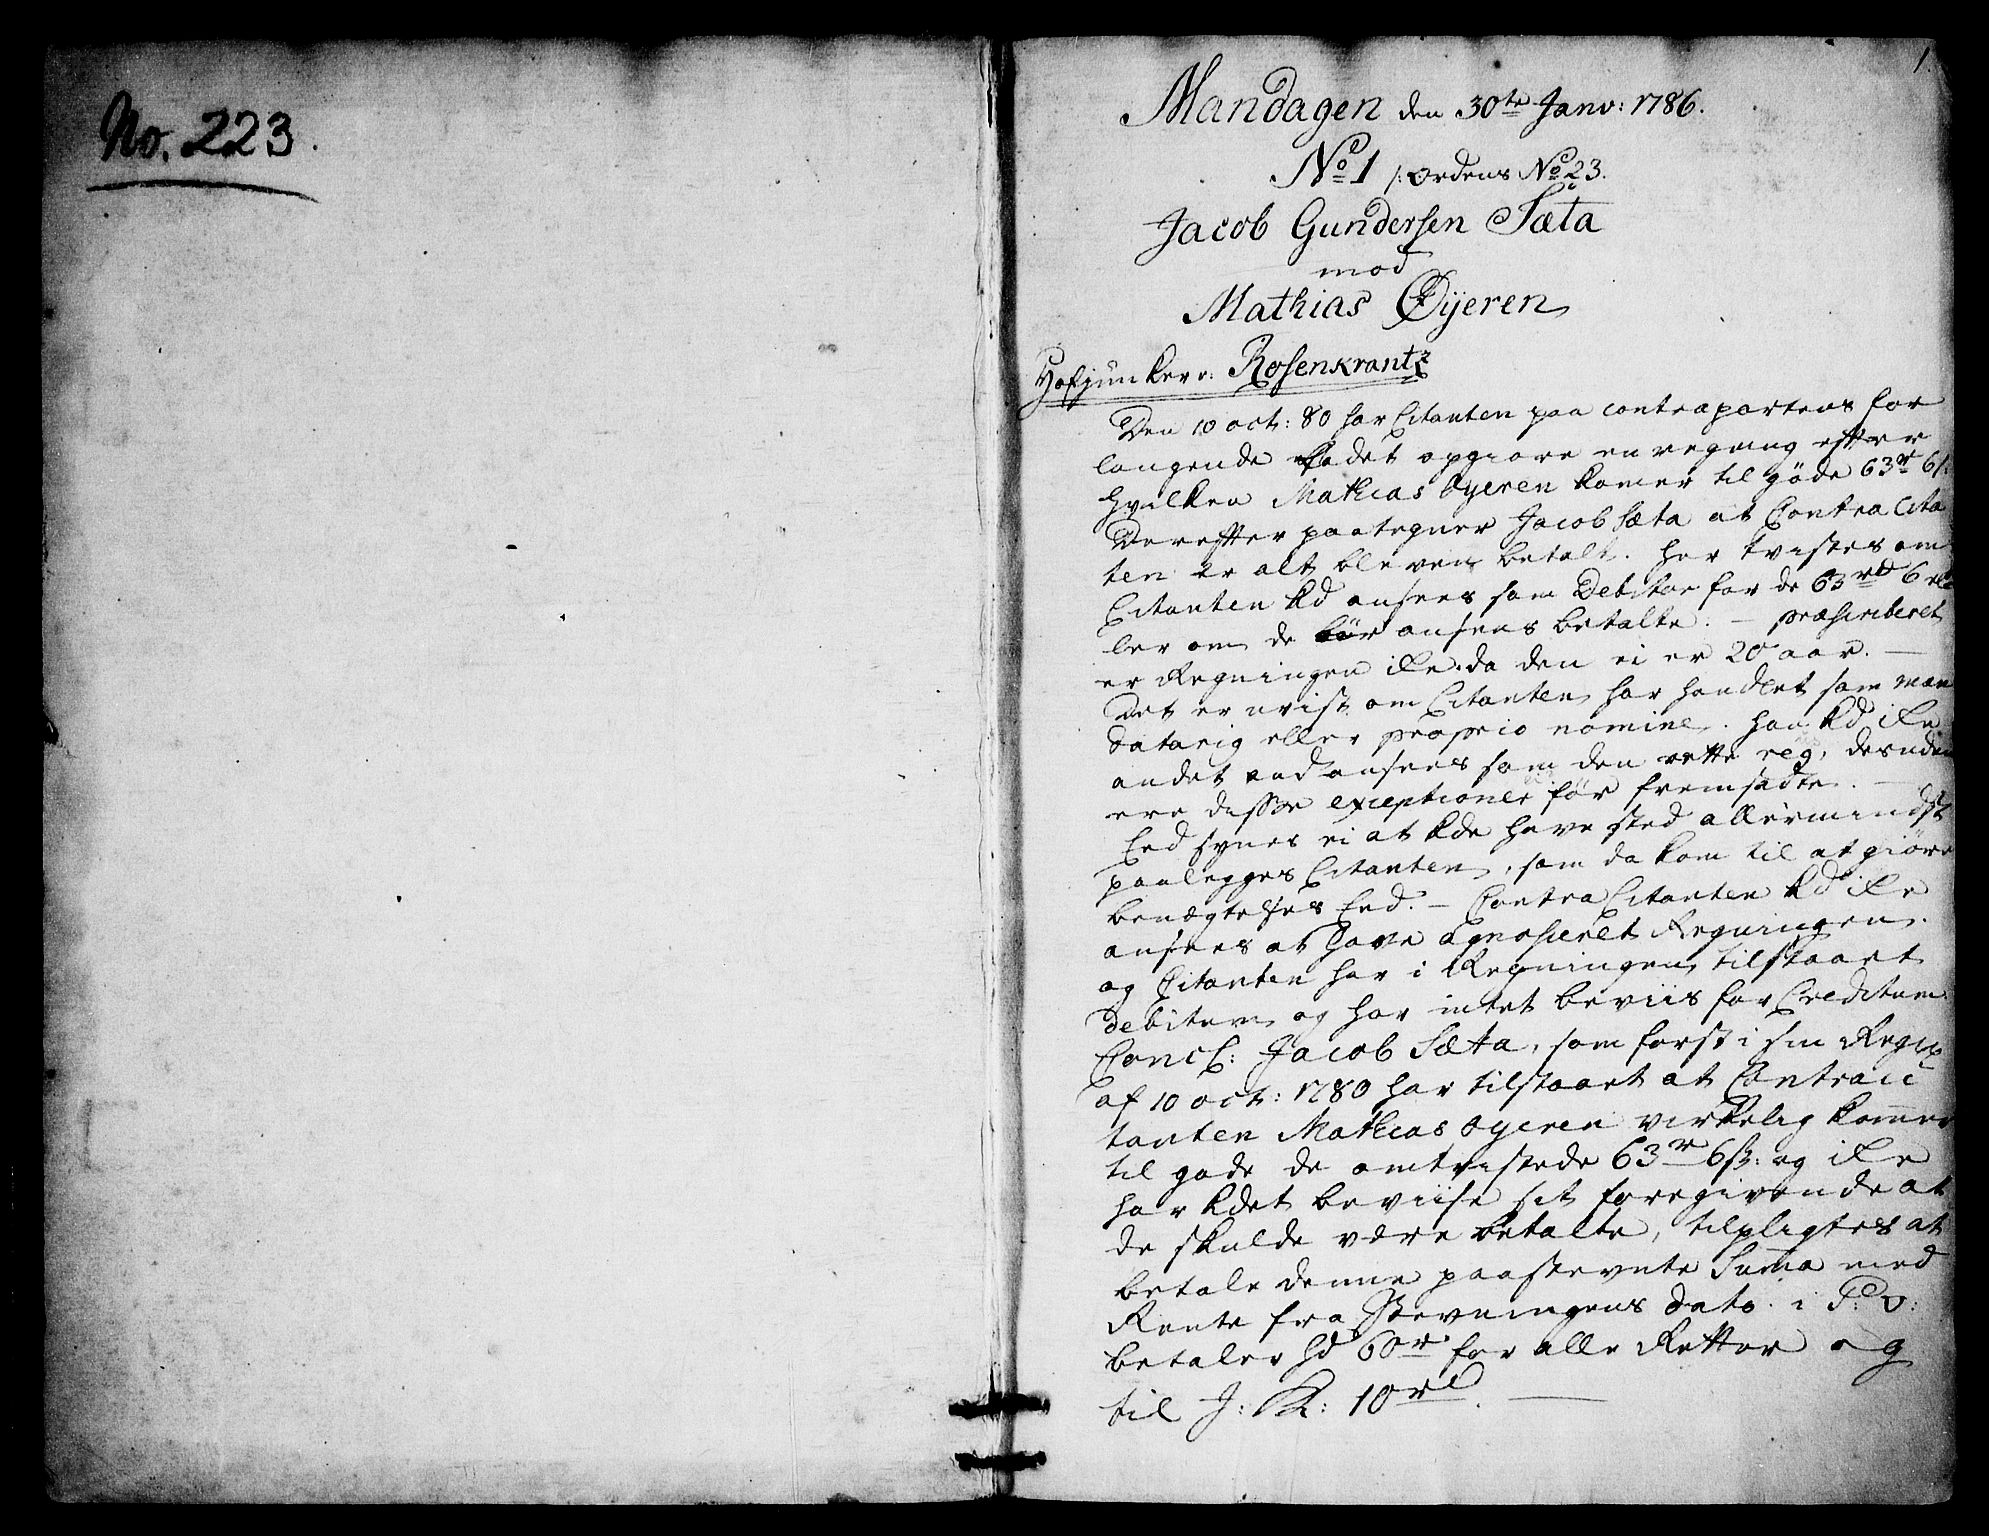 No. 223.
1.
Mandagen den 30te Janv: 1786.
No 1 /: Ordens No 23.
Jacob Gundersen Sæta
mod
Mathias Øyeren
Hofjunker v: Rosenkrantz
Den 10 oct: 80 har Citanten paa contrapartens for
langende ladet opgiøre en regning efter
hvilken Mathias Øyeren komer til gode 63 r 6 s
Derefter paategner Jacob Sæta at Contra Cita
ten er alt bleven betalt. her tvistes om
Citanten kd ansees som Debitor for de 63 rd 6 el
ler om de bør ansees betalte. – præscriberet
er Regningen ike da den ei er 20 aar. –
Det er uvist om Citanten har handlet som man
datarig eller proprio nomine. han kd ike
andet end ansees som den rette reg, desuden
ere disse exceptioner før fremsadte. –
Eed synes ei at kde have sted allermindst
paalegges Citanten, som da kom til at giøre
benægtelses Eed. – Contra Citanten kd ike
ansees at have agnosceret Regningen.
og Citanten har i Regningen tilstaaet
debitum og har intet beviis for Creditum.
Concl: Jacob Sæta, som først i sin Regn
af 10 oct: 1780 har tilstaaet at Contraci
tanten Mathias Øyeren virkelig kommer
til gode de omtvistede 63 r 6 s: og ike
har kdet beviise sit foregivende at
de skulde være betalte, tilpligtes at
betale denne paastevnte Suma med
Rente fra Stevningens dato. i P: O:
betaler hd 60 r for alle Retter og
til J: K: 10 rd. –